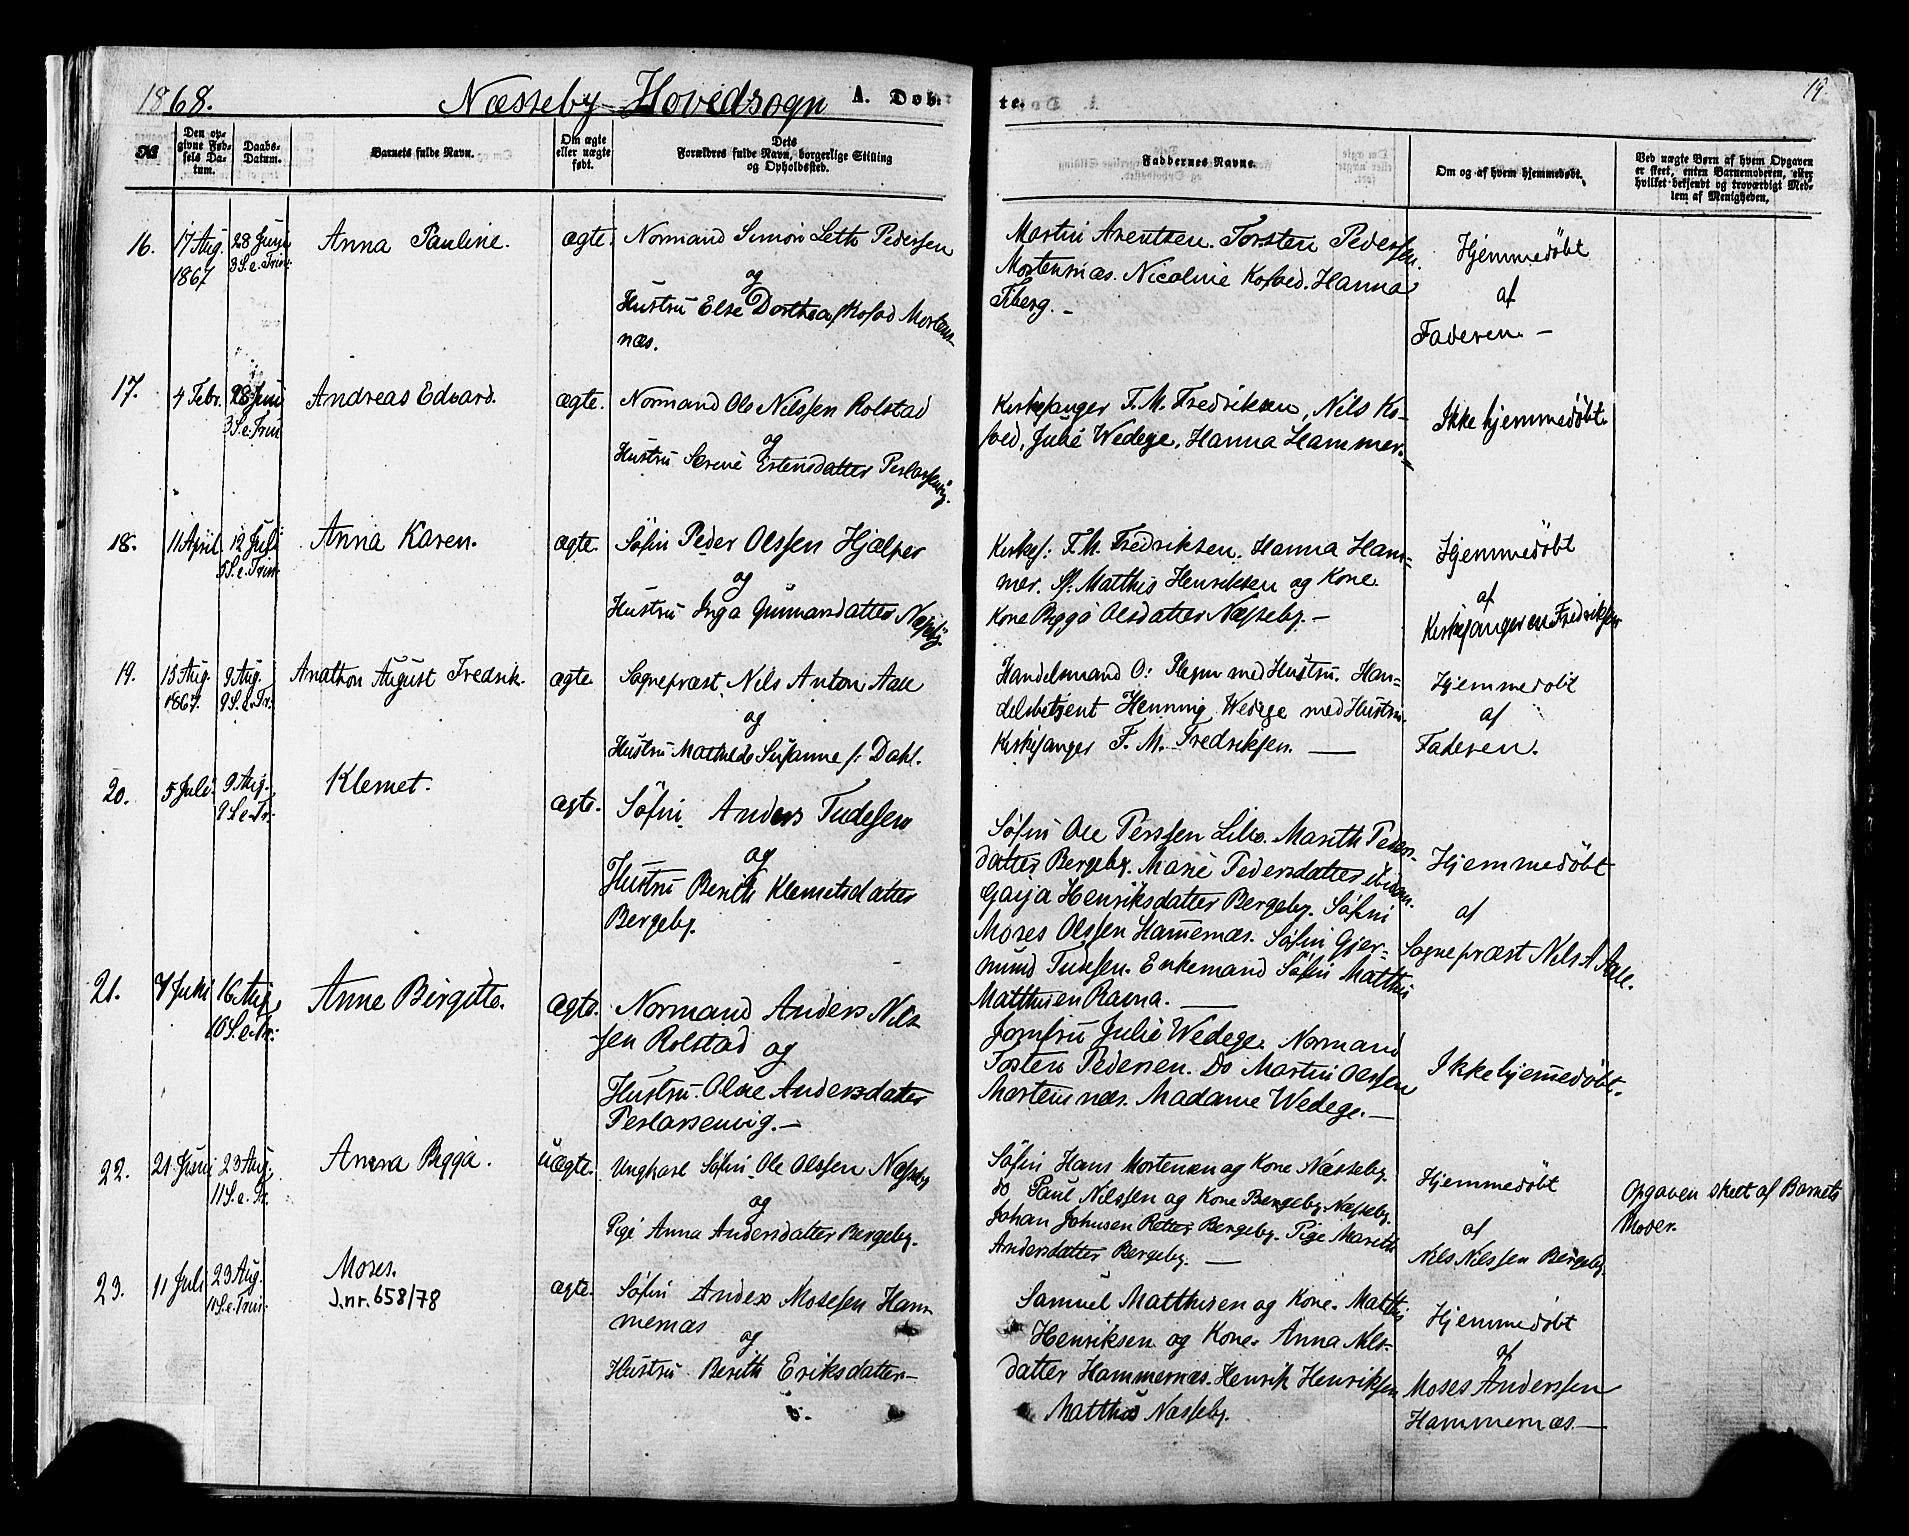 1868. Næsseby Hovedsogn A. Døbte. 19.
№
Den opgivne Fødsels Datum.
Daabs-Datum.
Barnets fulde Navn.
Om ægte eller uægte født.
Dets Forældres fulde Navn, borgerlige Stilling og Opholdssted.
Faddernes Navne.
Om og af hvem hjemmedøbt.
Ved uægte Børn af hvem Opgaven er skeet, enten Barnemoderen, eller hvilket bekjendt og troværdigt Medlem af Menigheden.
16.
17 Aug.
1867
28 Juni
3 S. e. Trin.
Anna Pauline.
ægte.
Normand Simon Leth Pedersen
og
Hustru Else Dorthea Kofod Mortens-
næs.
Martin Arentsen. Torsten Pedersen.
Mortensnæs. Nicoline Kofoed. Hanna
Fiberg. -
Hjemmedöbt
af
Faderen. -
17.
4 Febr.
28 Juni
3 S. e. Trin
Andreas Edvard.
ægte.
Normand Ole Nilssen Rolstad
og
Hustru Serine Estensdatter Perlarssenvig.
Kirkesanger F. M. Fredriksen, Nils Ko-
foed, Julie Wedege, Hanna Hammer.
Ikke hjemmedöbt.
18.
11 April.
12 Juli
5 S. e. Trin.
Anna Karen.
ægte.
Söfin Peder Olssen Hjælper
og
Hustru Inga Gunnarsdatter Næsseby.
Kirkes: F. M. Fredriksen. Hanna Ham-
mer. Sf. Matthis Henriksen og Kone
Kone Bigga Olsdatter Næsseby. -
Hjemmedöbt
af
Kirkesangeren Fredriksen
19.
13 Aug.
1867.
9 Aug.
9 S. e. Tr.
Anathon August Fredrik.
ægte
Sognepræst Nils Anton Aall
og
Hustru Mathilde Susanne f: Dahl.
Handelsmand O: Plegm med Hustru. Han-
delsbetjent Henning Wedege med Hustru.
Kirkesanger F. M. Fredriksen. -
Hjemmedöbt
af
Faderen.
20.
5 Juli.
9 Aug.
9 S. e. Tr.
Klemet.
ægte.
Söfin. Anders Tudesen
og
Hustru Berith Klemetsdatter
Bergeby.
Söfin Ole Perssen Lilo. Marith Peders-
datter Bergeby. Marie Pedersdatter ibidem.
Gaija Henriksdatter Bergeby. Söfin
Moses Olssen Hammernæs. Söfin Gjer-
mund Tudesen. Enkemand Söfin Matthis
Matthisen Ravna. -
Hjemmedöbt
af
Sognepræst Nils A Aall.
21.
7 Juni
16 Aug.
10 S. e. Tr.
Anne Birgitte.
ægte.
Normand Anders Nils-
sen Rolstad og
Hustru Oline Andersdatter
Perlarssenvig. -
Jomfru Julie Wedege. Normand
Torsten Pedersen. Do Martin Olssen
Mortensnæs. Madame Wedege. -
Ikke hjemmedöbt.
22.
21. Juni
23 Aug.
11 S. e. Tr.
Anna Bigga.
uægte.
Ungkarl Söfin Ole Olssen Næsseby
og
Pige Anna Andersdatter Bergeby.
Söfin Hans Mortensen og Kone Næsseby.
do Paul Nilssen og Kone Bergeby. Næsseby.
Johan Johnsen Retter Bergeby. Pige Marith
Andersdatter Bergeby. -
Hjemmedöbt
af
Nils Nilssen Bergeby.
Opgaven skeet af Barnets
Moder.
23.
11 Juli
23 Aug.
11 S. e. Trin.
Moses.
J.nr. 658/78
ægte.
Söfin Anders Mosesen Ham-
mernæs
og
Hustru Berith Eriksdatter-
Samuel Matthisen og Kone. Matthis
Henriksen og Kone. Anna Nils-
datter Hammernæs. Henrik Henriksen
Matthis Næsseby.
Hjemmedöbt
af
Moses Anderssen
Hammernæs. -